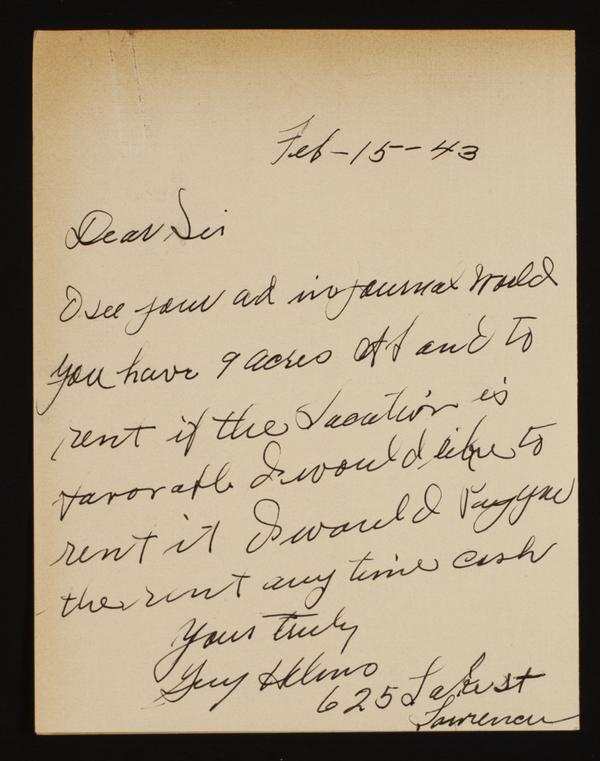 Feb-15-43
Dear Sir
I see your ad in Journal World
you have 9 acres of land to
rent if the Location is
favorable I would like to
rent it I would Pay you
the rent any time cash
Yours truly
Guy
625 Lake st
Lawrence